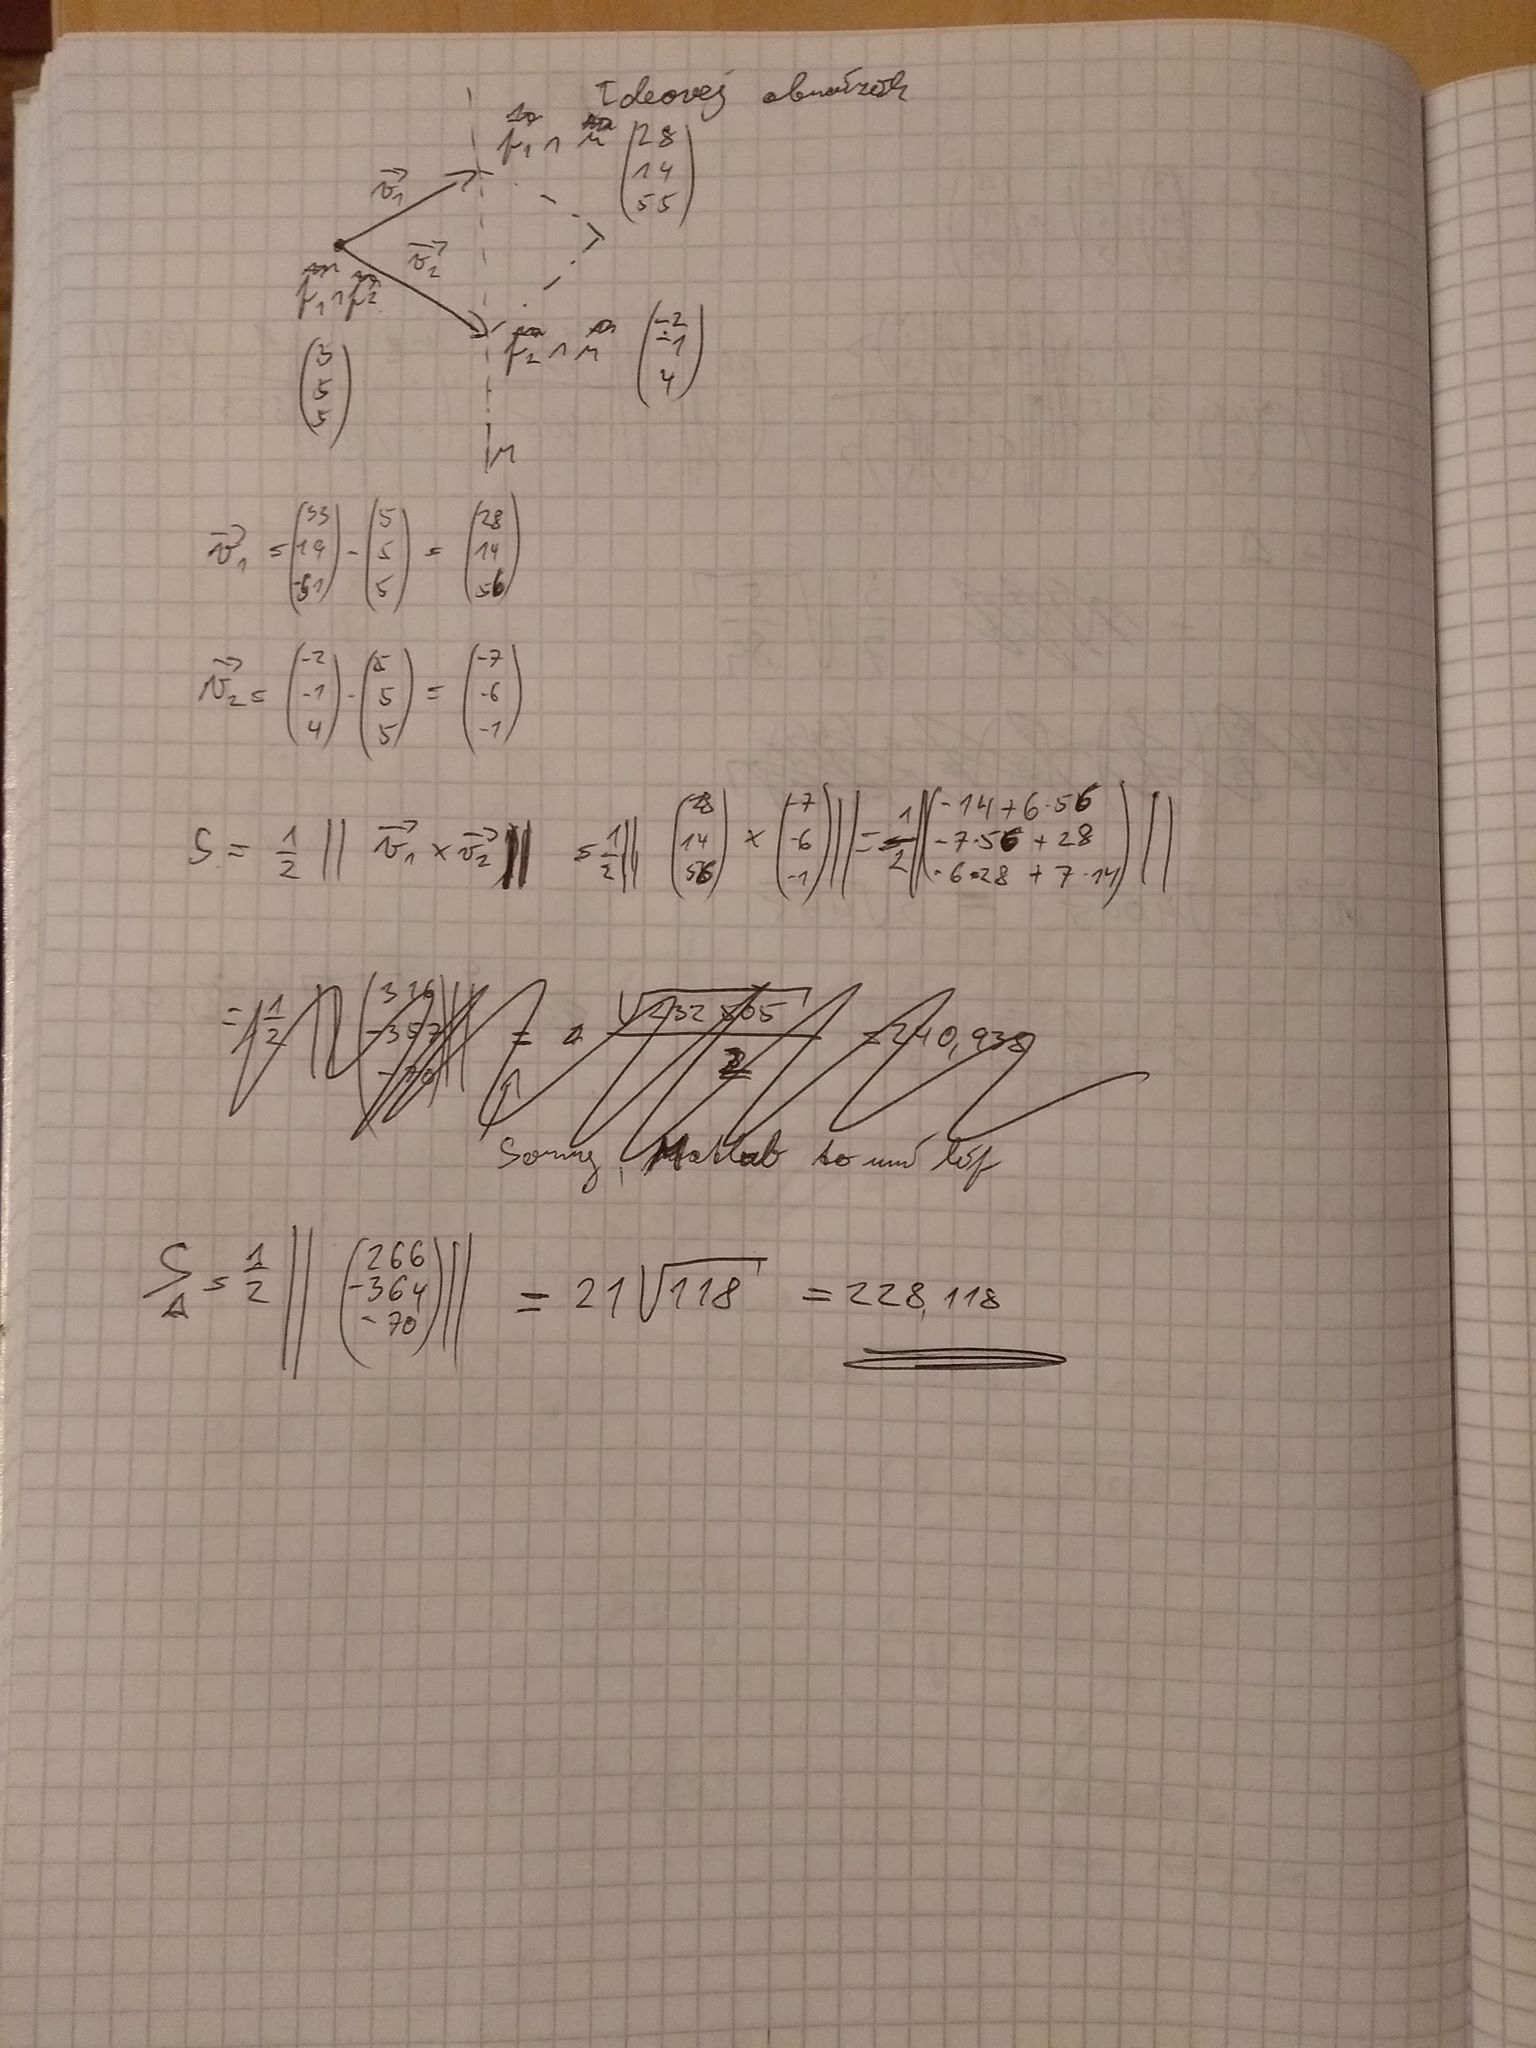 Ideovej obrázek
p₁ ∩ r (28 14 55)
v⃗₁
v⃗₂
p₁ ∩ p₂
p₂ ∩ r (-2 -1 4)
(3 5 5)
r
v⃗₁ = (33 19 -61) - (5 5 5) = (28 14 56)
v⃗₂ = (-2 -1 4) - (5 5 5) = (-7 -6 -1)
S = 1/2 || v⃗₁ × v⃗₂ || = 1/2 || (28 14 56) × (-7 -6 -1) || = 1/2 || (-14+6·56 -7·56+28 -6·28+7·14) ||
= 1/2 || (316 -357 -70) || = √232505 / 2 = 240,938
Sorry, Matlab to umí líp
S△ = 1/2 || (266 -364 -70) || = 21√118 = 228,118